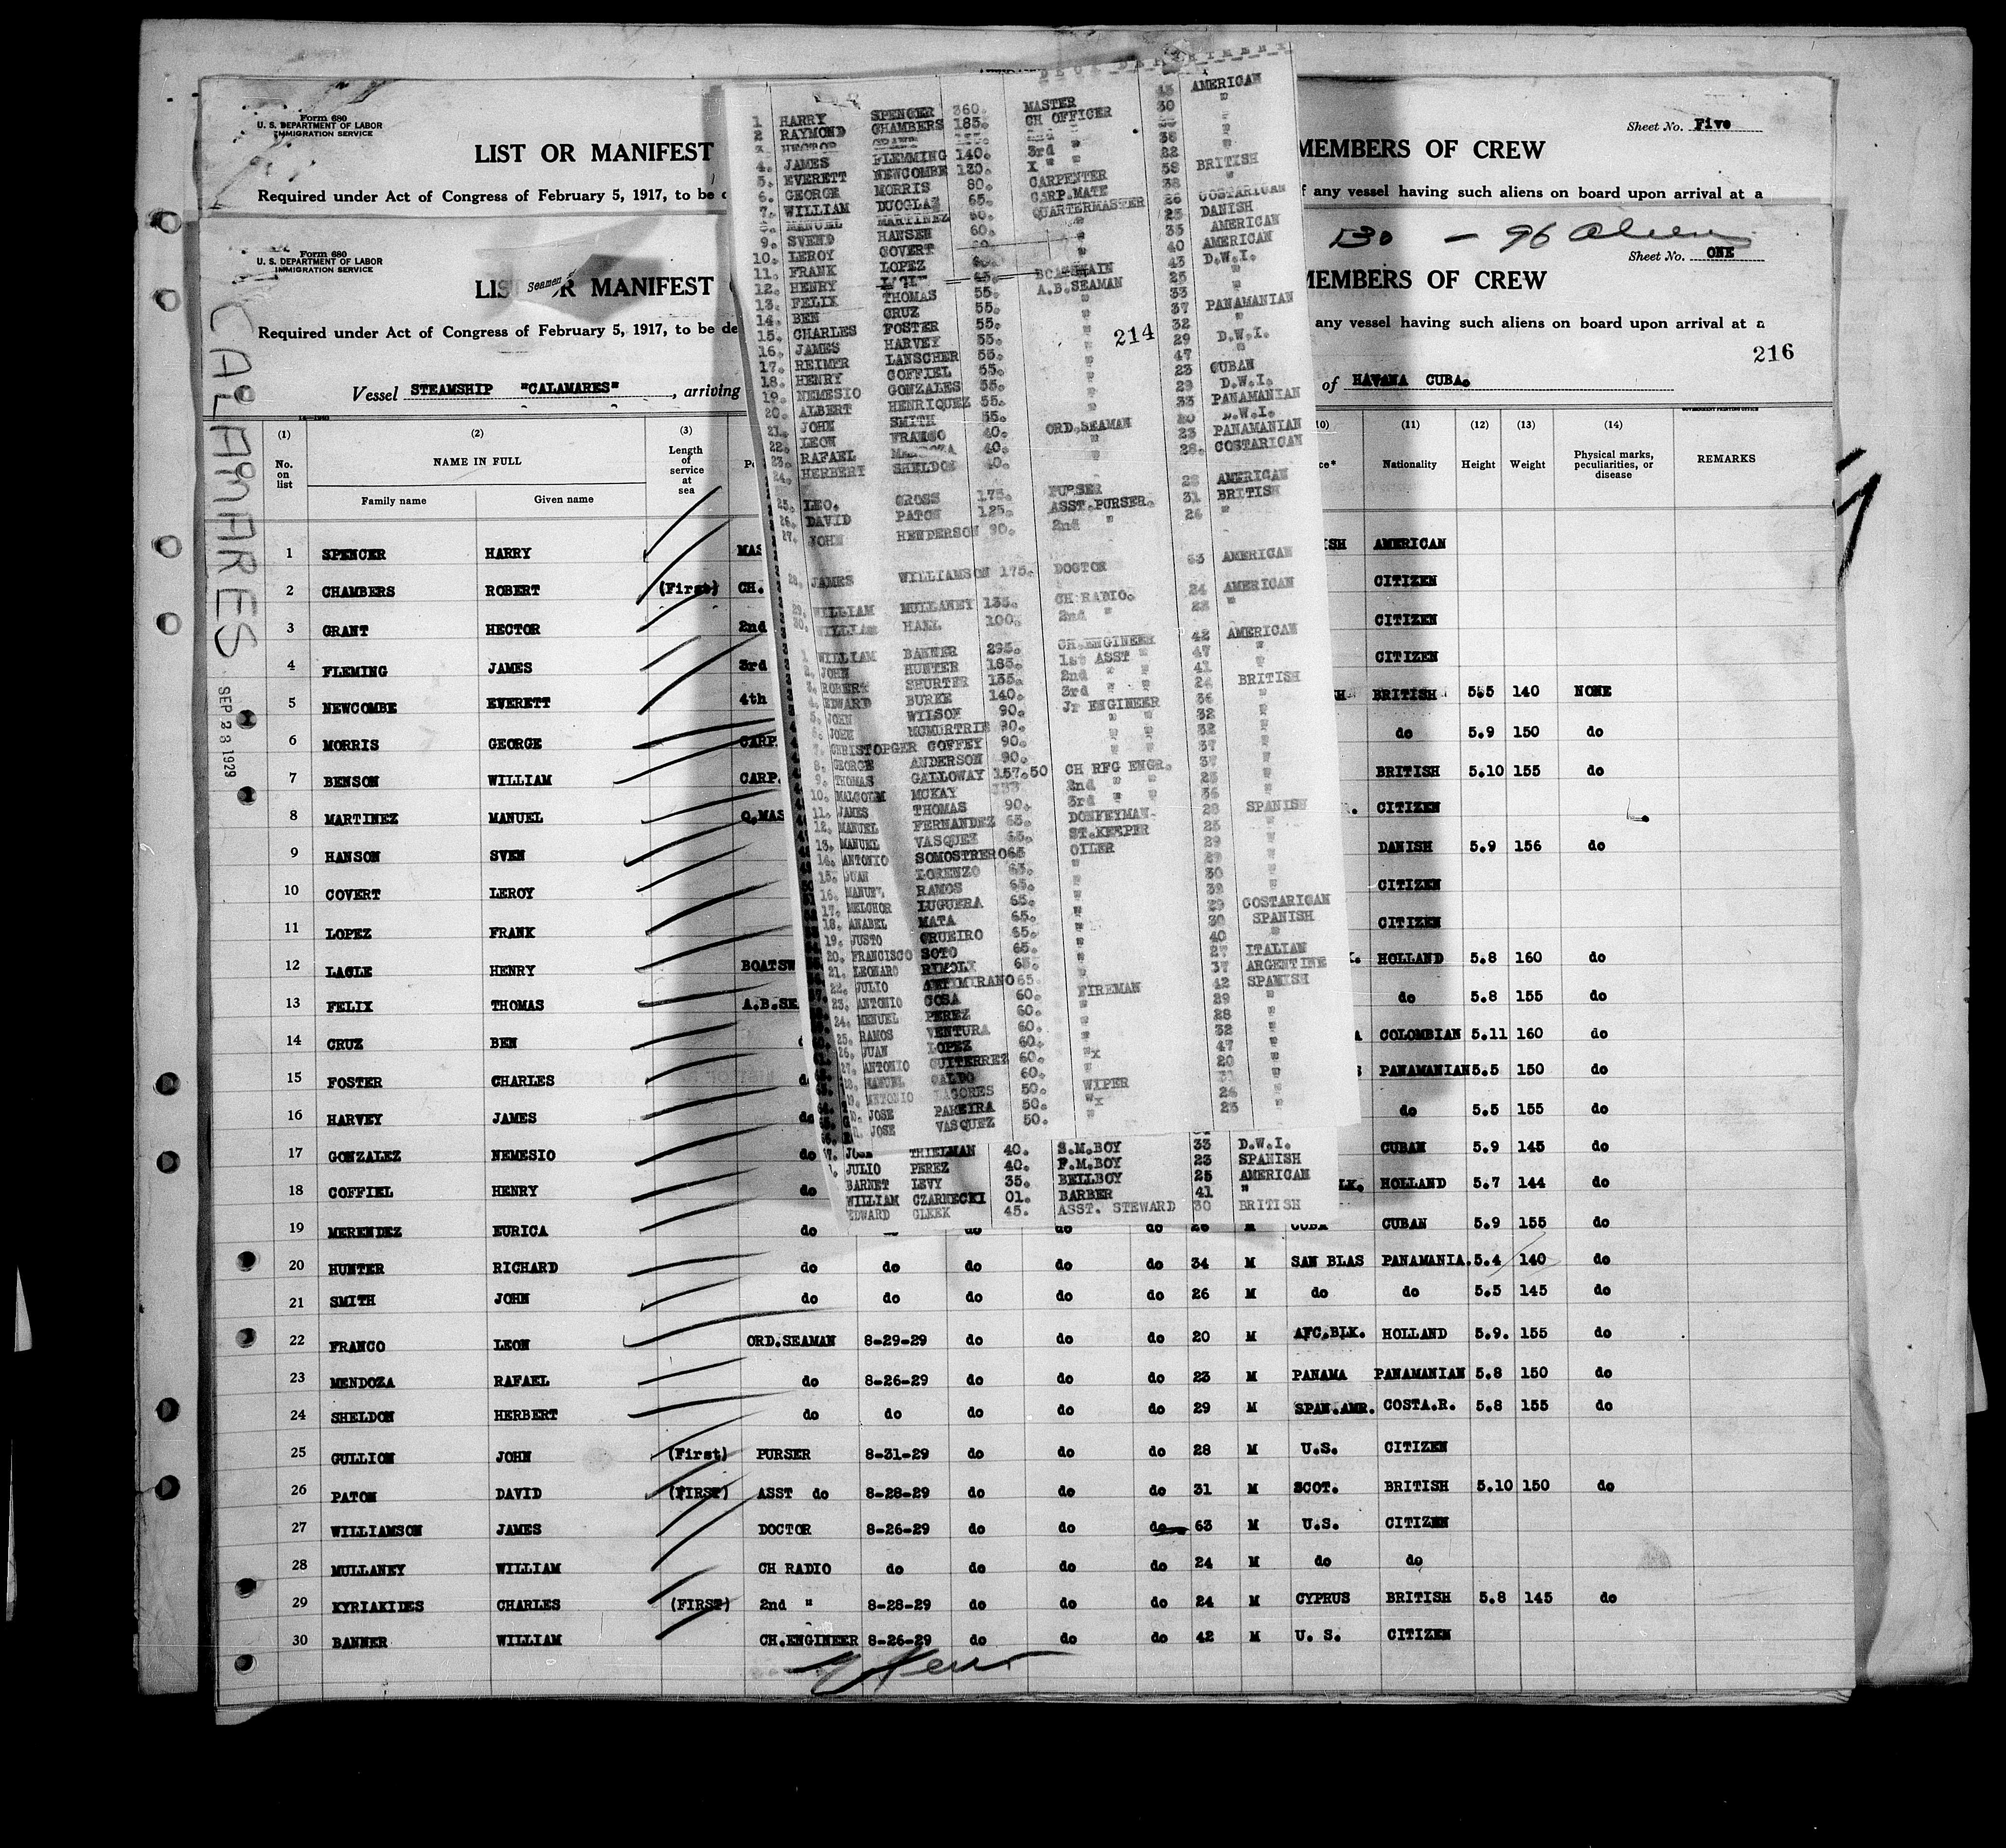 Form 680
U. S. DEPARTMENT OF LABOR
IMMIGRATION SERVICE
Sheet No. Five
LIST OR MANIFEST
MEMBERS OF CREW
Required under Act of Congress of February 5, 1917, to be d
f any vessel having such aliens on board upon arrival at a
Form 680
U. S. DEPARTMENT OF LABOR
IMMIGRATION SERVICE
130 — 96 Aliens
Sheet No. ONE
Seamen
MANIFEST
MEMBERS OF CREW
Required under Act of Congress of February 5, 1917, to be de
any vessel having such aliens on board upon arrival at a
216
Vessel STEAMSHIP "CALAMARES", arriving
of HAVANA CUBA.
CALAMARES
SEP 23 1929
DECK DEPARTMENT
1 HARRY SPENCER 360. MASTER 43 AMERICAN
2 RAYMOND CHAMBERS 185. CH OFFICER 30 "
3. HECTOR
4. JAMES FLEMMING 140. 3rd " 38 "
5. EVERETT NEWCOMBE 130. X " 22 "
6. GEORGE MORRIS 80. CARPENTER 58 BRITISH
7. WILLIAM DUOGLAZ 65. CARP.MATE 38 "
8. MANUEL MARTINEZ 60. QUARTERMASTER 26 COSTARICAN
9. SVEND HANSEN 60. " 25 DANISH
10. LEROY COVERT " 35 AMERICAN
11. FRANK LOPEZ 40 AMERICAN
12. HENRY BOATSWAIN 43 D.W.I.
13. FELIX THOMAS 55. A.B.SEAMAN 25 "
14. BEN CRUZ 55. " 33 "
15. CHARLES FOSTER 55. " 37 PANAMANIAN
16. JAMES HARVEY 55. " 32 "
214
17. REIMER LANSCHER 55. " 29 D.W.I.
18. HENRY COFFIEL 55. " 47 "
19. NEMESIO GONZALES 55. " 23 CUBAN
20. ALBERT HENRIQUEZ 55. " 29 D.W.I.
21. JOHN SMITH 55. " 33 PANAMANIAN
22. LEON FRANCO 40. ORD.SEAMAN 20 D.W.I.
23. RAFAEL 40. " 23 PANAMANIAN
24. HERBERT SHELDON 40. 28. COSTARICAN
25. LEO. GROSS 175. PURSER 28 AMERICAN
26. DAVID PATON 125. ASST.PURSER. 31 BRITISH
27. JOHN HENDERSON 90. 2nd " 26 "
28. JAMES WILLIAMSON 175. DOCTOR 63 AMERICAN
29. WILLIAM MULLANEY 135. CH RADIO. 24 AMERICAN
30. WILLIAM HALL 100. 2nd " 22 "
1 WILLIAM BANNER 293. CH.ENGINEER 42 AMERICAN
2. JOHN HUNTER 185. 1st ASST " 47 "
3. ROBERT SHURTER 135. 2nd " " 41 "
4. EDWARD BURKE 140. 3rd " " 24 BRITISH
5. JOHN WILSON 90. Jr ENGINEER 36 "
6. JOHN MCMURTRIE 90. " " 32 "
7. CHRISTOPGER COFFEY 90. " " 32 "
8. GEORGE ANDERSON 90. " " 37 "
9. THOMAS GALLOWAY 157.50 CH RFG ENGR. 37 "
10. MALCOLM MCKAY 2nd " " 25 "
11. JAMES THOMAS 90. 3rd " " 36 "
12. MANUEL FERNANDEZ 65. DONKEYMAN- 28 SPANISH
13. MANUEL VASQUEZ 65. ST.KEEPER 25 "
14. ANTONIO SOMOSTRERO65 OILER 29 "
15. JUAN LORENZO 65. " 29 "
16. MANUEL RAMOS 65. " 30 "
17. MELCHOR LUGUERA 65. " 32 "
18. ANABEL MATA 65. " 29 COSTARICAN
19. JUSTO CRUEIRO 65. " 30 SPANISH
20. FRANCISCO SOTO 65. " 40 "
21. LEONARO RIMOLI 65. " 27 ITALIAN
22. JULIO 65. " 37 ARGENTINE
23. ANTONIO COSA 60. FIREMAN 42 SPANISH
24. MENUEL PEREZ 60. " 29 "
25. RAMOS VENTURA 60. " 28 "
26. JUAN LOPEZ 60. " 32 "
27. ANTONIO GUITERREZ 60. "x 47 "
28. MANUEL GALDO 60. " 20 "
ANTONIO LAGORES 50. WIPER 31 "
JOSE PAREIRA 50. "x 26 "
JOSE VASQUEZ 50. " 23 "
THIELMAN 40. S.M.BOY 33 D.W.I.
JULIO PEREZ 40. P.M.BOY 23 SPANISH
BARNET LEVY 35. BELLBOY 25 AMERICAN
WILLIAM CZARNECKI 01. BARBER 41 "
EDWARD GLEEK 45. ASST. STEWARD 30 BRITISH
(1) (2) (3) (11) (12) (13) (14)
No. on list NAME IN FULL Length of service at sea Nationality Height Weight Physical marks, peculiarities, or disease REMARKS
Family name Given name
1 SPENCER HARRY AMERICAN
2 CHAMBERS ROBERT (First) CH. CITIZEN
3 GRANT HECTOR 2nd CITIZEN
4 FLEMING JAMES 3rd CITIZEN
5 NEWCOMBE EVERETT 4th BRITISH 5.5 140 NONE
6 MORRIS GEORGE CARP. do 5.9 150 do
7 BENSON WILLIAM CARP. BRITISH 5.10 155 do
8 MARTINEZ MANUEL Q.MAS CITIZEN
9 HANSON SVEN DANISH 5.9 156 do
10 COVERT LEROY CITIZEN
11 LOPEZ FRANK CITIZEN
12 LAGLE HENRY BOATSW HOLLAND 5.8 160 do
13 FELIX THOMAS A.B.SE do 5.8 155 do
14 CRUZ BEN COLOMBIAN 5.11 160 do
15 FOSTER CHARLES PANAMANIAN 5.5 150 do
16 HARVEY JAMES do do 5.5 155 do
17 GONZALEZ NEMESIO do CUBAN 5.9 145 do
18 COFFIEL HENRY do LK. HOLLAND 5.7 144 do
19 MERENDEZ EURICA do do do do 26 M CUBA CUBAN 5.9 155 do
20 HUNTER RICHARD do do do do do 34 M SAN BLAS PANAMANIA. 5.4 140 do
21 SMITH JOHN do do do do do 26 M do do 5.5 145 do
22 FRANCO LEON ORD.SEAMAN 8-29-29 do do do 20 M AFC.BLK. HOLLAND 5.9. 155 do
23 MENDOZA RAFAEL do 8-26-29 do do do 23 M PANAMA PANAMANIAN 5.8 150 do
24 SHELDON HERBERT do do do do do 29 M SPAN.AMR. COSTA.R. 5.8 155 do
25 GULLION JOHN (First) PURSER 8-31-29 do do do 28 M U.S. CITIZEN
26 PATON DAVID (FIRST) ASST do 8-28-29 do do do 31 M SCOT. BRITISH 5.10 150 do
27 WILLIAMSON JAMES DOCTOR 8-26-29 do do do 63 M U.S. CITIZEN
28 MULLANEY WILLIAM CH RADIO do do do do 24 M do do
29 KYRIAKIDES CHARLES (FIRST) 2nd " 8-28-29 do do do 24 M CYPRUS BRITISH 5.8 145 do
30 BANNER WILLIAM CH.ENGINEER 8-26-29 do do do 42 M U. S. CITIZEN